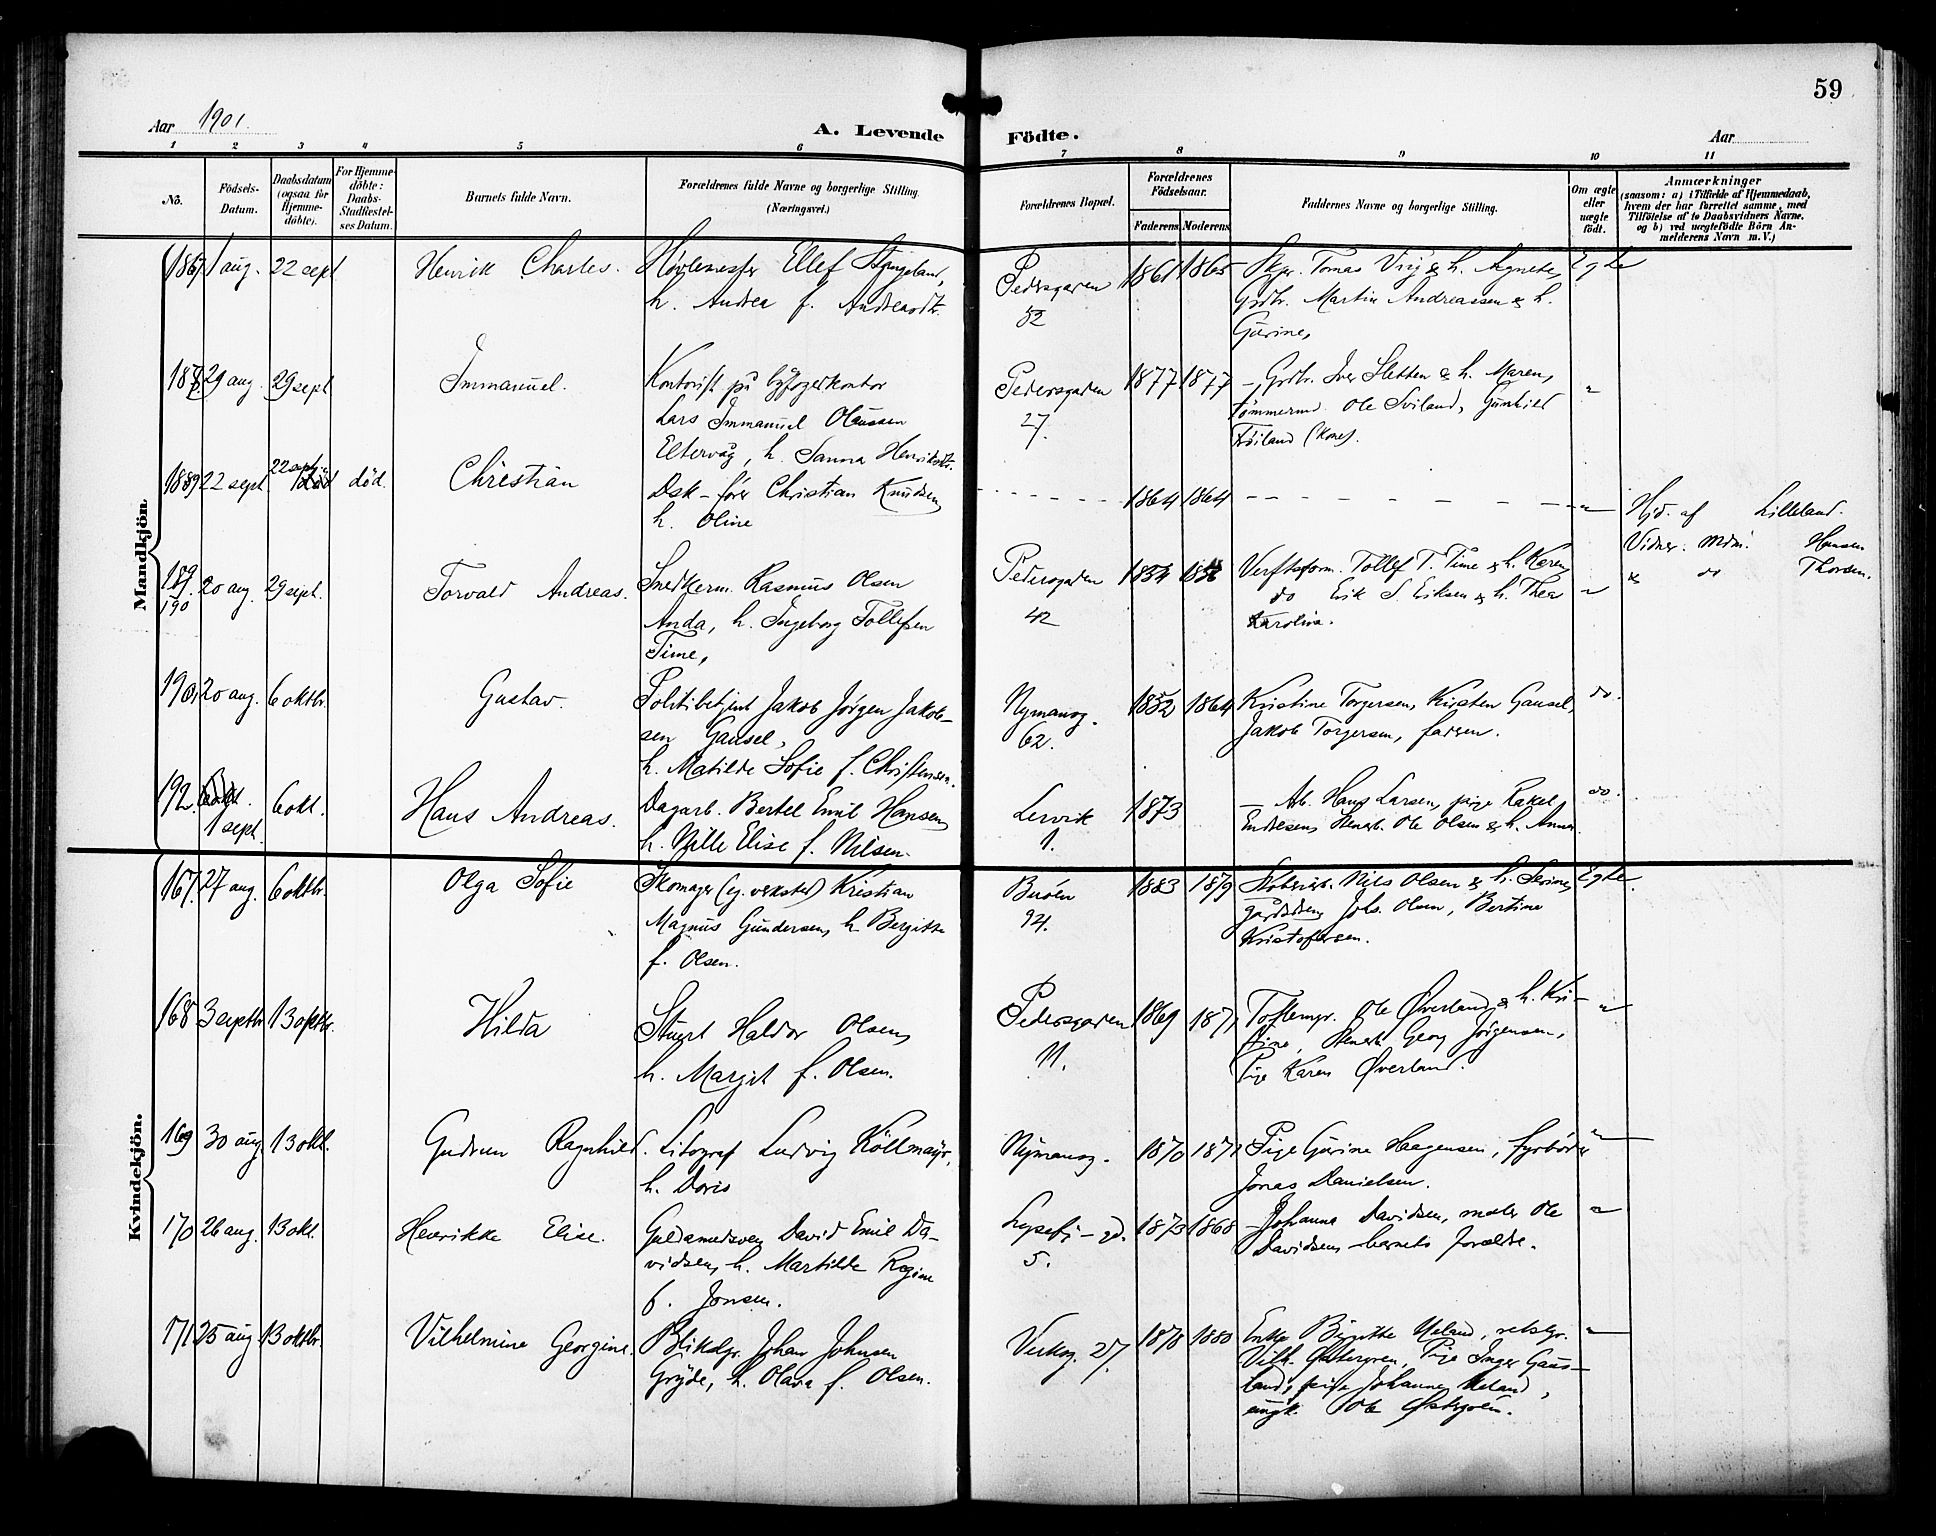 59
Aar 1901.
A. Levende Födte.
Aar
1 2 3 4 5 6 7 8 9 10 11
No.
Födsels-
Datum.
Daabsdatum
(ogsaa for
Hjemme-
döbte).
For Hjemme-
döbte:
Daabs-
Stadfæstel-
ses Datum.
Barnets fulde Navn.
Forældrenes fulde Navne og borgerlige Stilling.
(Næringsvei.)
Forældrenes Bopæl.
Forældrenes
Födselsaar.
Faderens Moderens
Faddernes Navne og borgerlige Stilling.
Om ægte
eller
uægte
födt.
Anmærkninger
(saasom: a) i Tilfælde af Hjemmedaab,
hvem der har forrettet samme, med
Tilföielse af to Daabsvidners Navne,
og b) ved uægtefödte Börn An-
melderens Navn m. V.)
Mandkjön.
1 aug. 22 sept Henrik Charles. Ellef
h. Andrea f. Andreasdt.
Pedersgaden
52
1861 1865
Tomas h. Agnete,
Grdbr. Martin Andreassen & h.
Gurine,
Egte
29 aug. 29 sept Immanuel.
Kontorist på byfogerkontor
Lars Immanuel Olaussen
Eltervåg, h. Sanna Henriksdt.
Pedersgaden
27.
1877 1877
Grdbr. Iver Sletten & h. Maren,
tømmerm. Ole Sviland, Gunhild
(kone).
189 22 sept. 22 sept. død. Christian
Christian Knudsen,
h. Oline
1864 1864
Hjd. af Lilleland.
Vidner. Mdm. Hansen
& do Thorsen.
190 20 aug. 29 sept. Torvald Andreas.
Snedkerm. Rasmus Olsen
Anda, h. Ingeborg Tollefsen
Time,
Pedersgaden
42
1854
Verftsform. Tollef T. Time & h. Karen,
do Erik S. Eriksen & h. Thea
Karolina.
191 20 aug. 6 oktbr. Gustav.
Politibetjent Jakob Jørgen Jakob-
sen Gausel,
h. Matilde Sofie f. Christensen.
Nymansg.
62.
1852 1864
Kristine Torgersen, Kirsten Gausel,
Jakob Torgersen, farsen.
do.
192. 1 sept. 6 okt. Hans Andreas.
Dagarb. Bertel Emil Hansen,
h. Nille Elise f. Nilsen.
Lervik
1.
1873
Ab. Hans Larsen, pige Rakel
Endresen, Stenarb. Ole Olsen & h. Anna.
do.
Kvindekjön.
167. 27 aug. 6 oktbr. Olga Sofie
Skomager (eg. verksted) Kristian
Magnus Gundersen, h. Bergitte
f. Olsen.
Buöen
94.
1883 1879
Nils Olsen & h. Serine,
Johs. Olsen, Bertine
Kristofersen.
Egte.
168 3 septbr. 13 oktbr. Hilda
Stuert Haldor Olsen,
h. Margit f. Olsen.
Pedersgaden
11.
1869 1871
Ole Øverland & h. Kri-
stine, Stenarb. Georg Jørgensen,
Pige Karen Øverland.
169 30 aug. 13 okt. Gudrun Ragnhild.
Litograf Ludvig Köllmayr,
h. Doris
Nymansg.
1870 1871
Pige Gurine Haagensen, fyrbøder
Jonas Danielsen.
170 26 aug. 13 okt. Henrikke Elise.
Guldsmedsven David Emil Da-
vidsen, h. Martilde Regine
f. Jonsen.
Lysefj-gd.
5.
1873 1868
Johanna Davidsen, maler Ole
Davidsen, barnets forældre.
171 25 aug. 13 oktbr. Vilhelmine Georgine.
Blikslgr. Johan Johnsen
Gryde, h. Olava f. Olsen.
27.
1878 1880
Enke Birgitte Meland,
Vilh. Østergren, Pige Inger Gaus-
land, pige Johanne Meland,
ungk. Ole